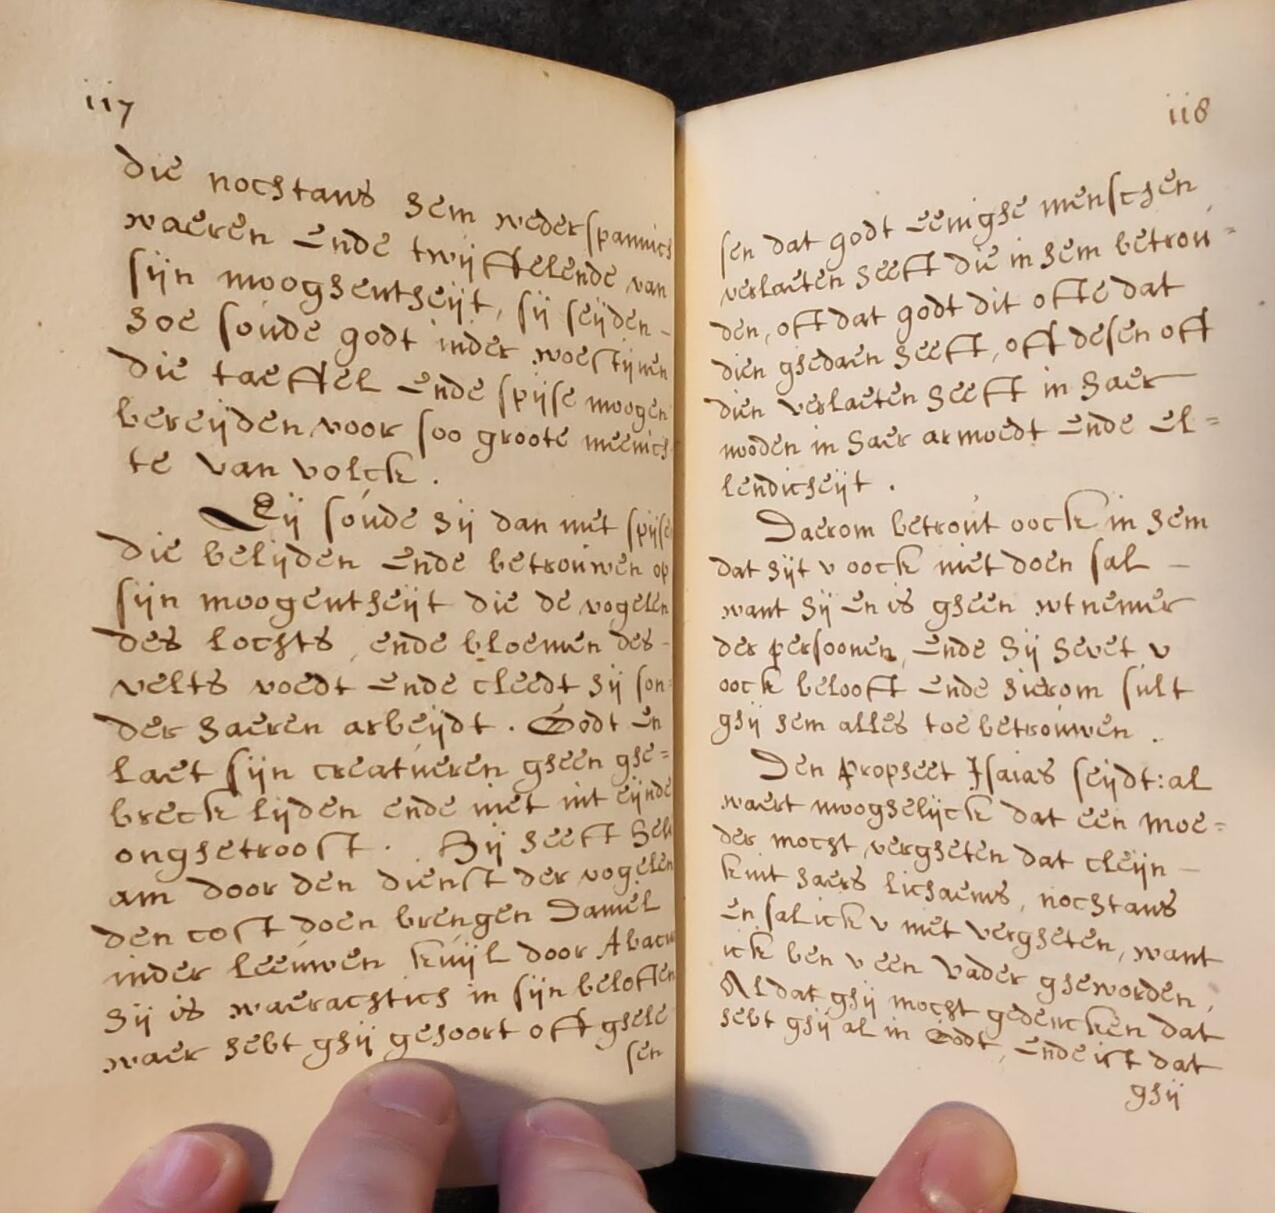 117
die nochtans hem wederspannich
waeren ende twijffelende van
sijn mooghentheijt, sij seijden -
hoe soude godt inder woestijnen
die taeffel ende spijse moogen
bereijden voor soo groote meenich
te van volck .
Eij soude hij dan niet spijse
die belijden ende betrouwen op
sijn moogentheijt die de vogelen
des lochts, ende bloemen des -
velts voedt ende cleedt hij son=
der haeren arbeijdt . Godt en
laet sijn creatueren gheen ghe=
breck lijden ende niet int eijnde
onghetroost . Hij heeft Heli
am door den dienst der vogelen
den cost doen brengen Daniel
inder leeuwen kuijl door Abacu
hij is waerachtich in sijn beloften
waer hebt ghij gehoort oft ghele
sen
118
sen dat godt eenighe menschen
verlaeten heeft die in hem betrou=
den, oft dat godt dit ofte dat
dien ghedaen heeft, oft desen oft
dien verlaeten heeft in haer
nooden in haer armoedt ende el=
lendicheijt .
Daerom betrout oock in hem
dat hijt v oock niet doen sal -
want hij en is gheen wtnemer
der persoonen, ende hij hevet v
oock belooft ende hierom sult
ghij hem alles toe betrouwen .
Den propheet Isaias seijdt: al
waert mooghelijck dat een moe=
der mocht vergheten dat cleijn -
kint haers lichaems, nochtans
en sal ick v niet vergheten, want
ick ben v een vader gheworden,
Al dat ghij mocht gedencken dat
hebt ghij al in Godt, ende ist dat
ghij